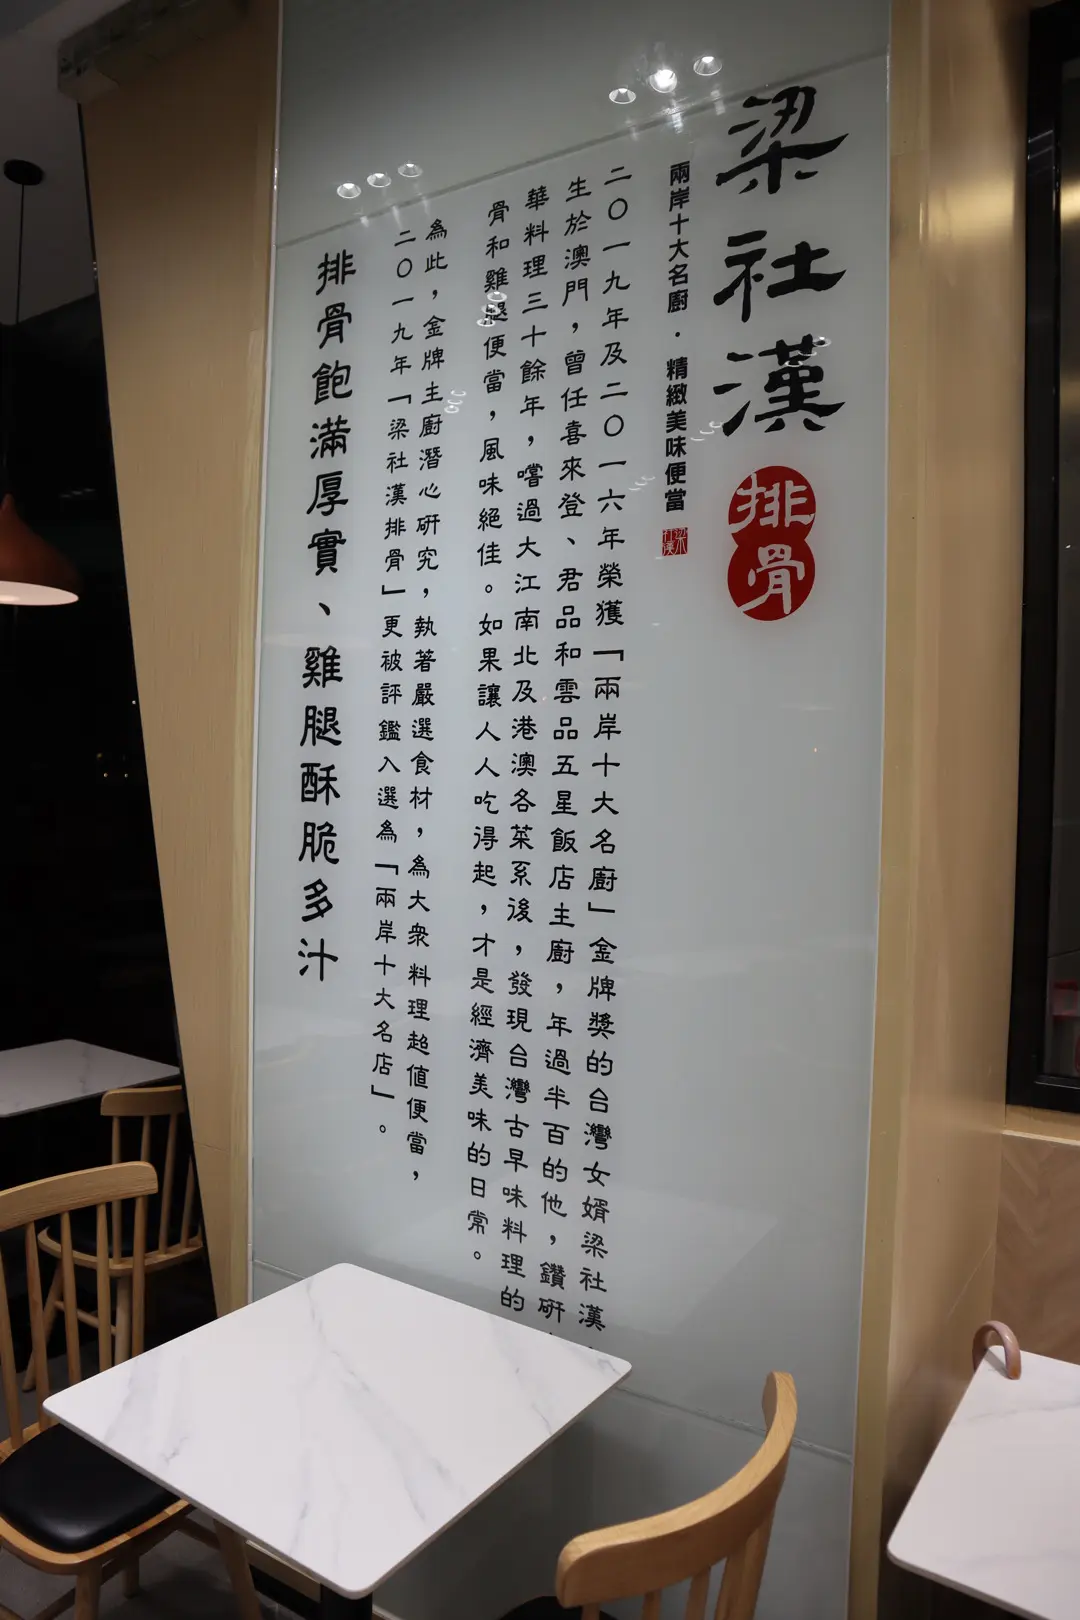 梁社漢
排骨
兩岸十大名廚．精緻美味便當
二〇一九年及二〇一六年榮獲「兩岸十大名廚」金牌獎的台灣女婿梁社漢
生於澳門，曾任喜來登、君品和雲品五星飯店主廚，年過半百的他，鑽研
華料理三十餘年，嚐過大江南北及港澳各菜系後，發現台灣古早味料理的
骨和雞腿便當，風味絕佳。如果讓人人吃得起，才是經濟美味的日常。
為此，金牌主廚潛心研究，執著嚴選食材，為大眾料理超值便當，
二〇一九年「梁社漢排骨」更被評鑑入選為「兩岸十大名店」。
排骨飽滿厚實、雞腿酥脆多汁